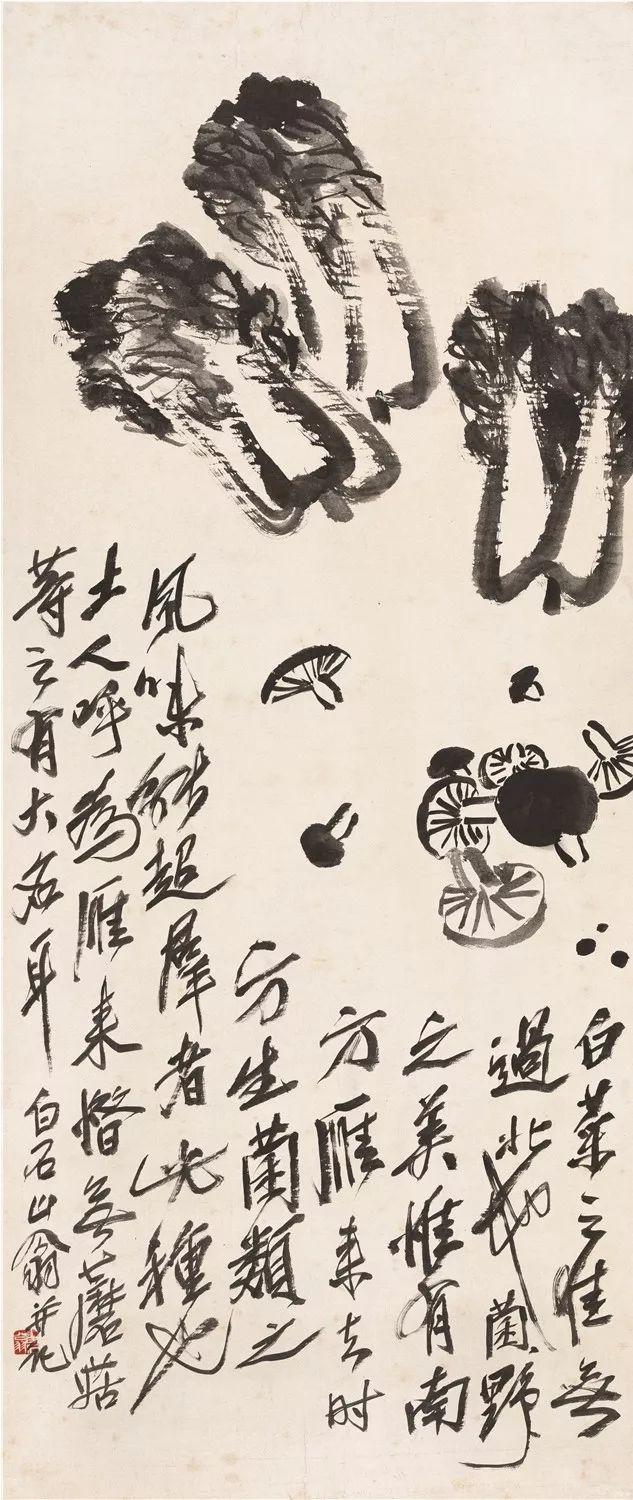 白菜之佳無
過北地菌野
之美惟有南
方雁来去时
方生菌類之
風味能超羣者此種也
土人呼為雁来無蘑菇
等之有大名耳 白石山翁并記